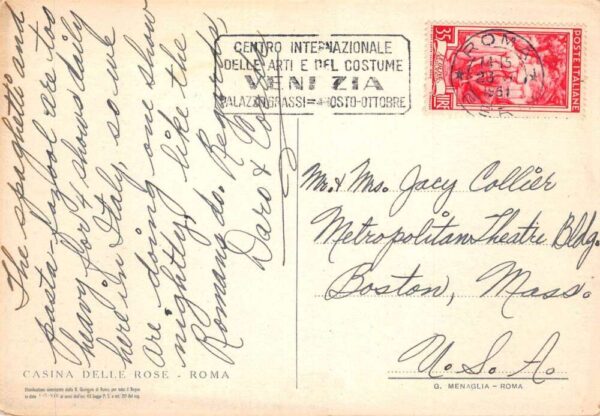 The spaghetti and
pasta-fazool are too
heavy for 4 shows daily
here in Italy, so we
are doing one show
nightly, like the
Romans do. Regards
Daro &
CENTRO INTERNAZIONALE
DELLE ARTI E DEL COSTUME
VENEZIA
PALAZZO GRASSI = AGOSTO-OTTOBRE
ROMA
1951
35
LIRE
POSTE ITALIANE
Mr. & Mrs. Jacy Collier
Metropolitan Theatre Bldg.
Boston, Mass.
U.S.A.
CASINA DELLE ROSE - ROMA
G. MENAGLIA - ROMA